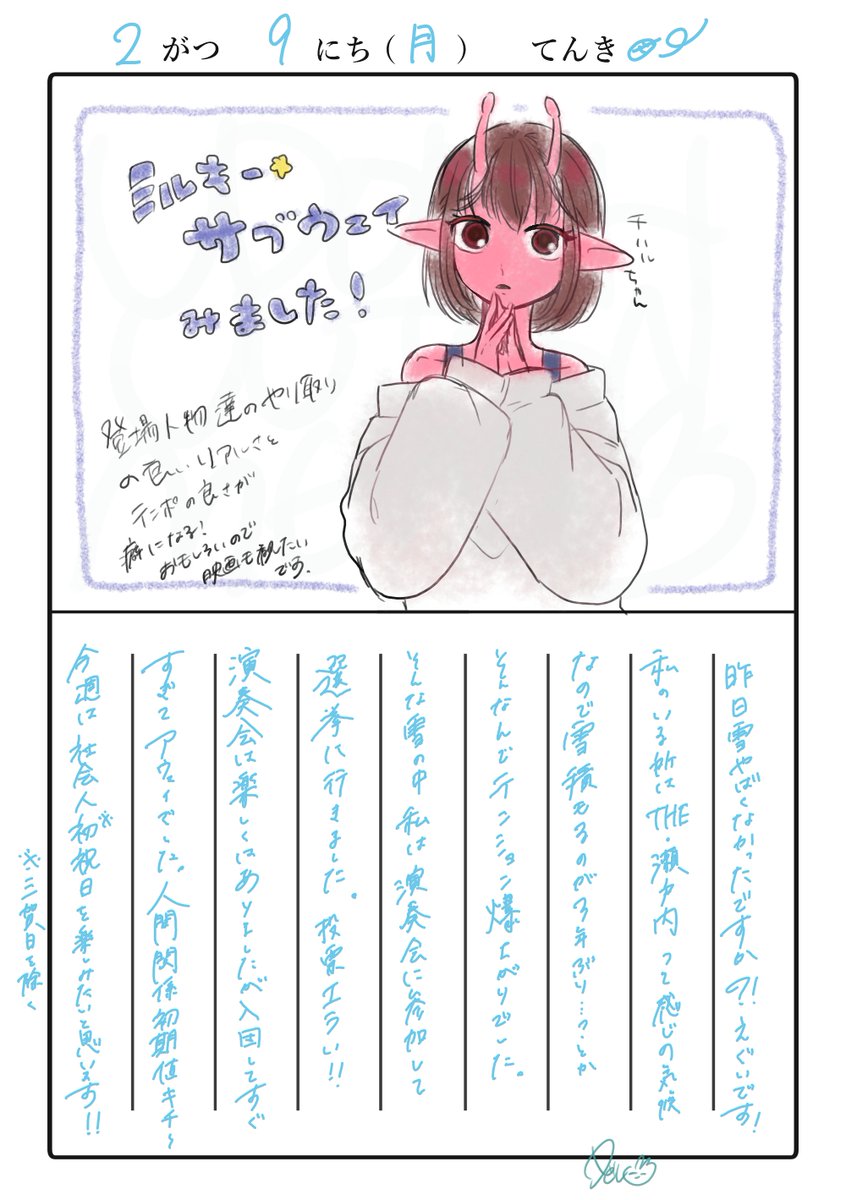 2がつ 9にち(月) てんき
ミルキー☆
サブウェイ
みました!
チハル
ちゃん
登場人物達のやり取り
の良いリアルさと
テンポの良さが
癖になる!
おもしろいので
映画も観たい
です。
昨日雪やばくなかったですかの?!えぐいです!
私のいる所はTHE・瀬戸内って感じの気候
なので雪積もるのが3年ぶり…っとか
そんなんでテンション爆上がりでした。
そんな雪の中私は演奏会に参加して
選挙に行きました。投票エラい!!
演奏会は楽しくはありましたが入団してすぐ
すぎてアウェイでした。人間関係初期値キチ〜
今週は社会人初※祝日を楽しみたいと思います!!
※三賀日を除く